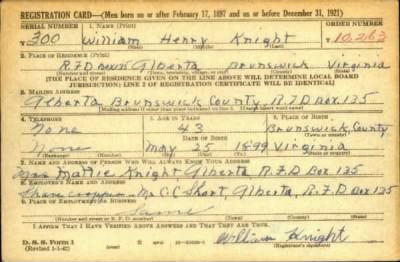 REGISTRATION CARD—(Men born on or after February 17, 1897 and on or before December 31, 1921)
SERIAL NUMBER 1. NAME (Print) ORDER NUMBER
300 William Henry Knight 10,263
(First) (Middle) (Last)
2. PLACE OF RESIDENCE (Print)
R.F.D Alberta Brunswick Virginia
(Number and street) (Town, township, village, or city) (County) (State)
[THE PLACE OF RESIDENCE GIVEN ON THE LINE ABOVE WILL DETERMINE LOCAL BOARD
JURISDICTION; LINE 2 OF REGISTRATION CERTIFICATE WILL BE IDENTICAL]
3. MAILING ADDRESS
Alberta Brunswick County, R.F.D Box 135
4. TELEPHONE 5. AGE IN YEARS 6. PLACE OF BIRTH
None 43 Brunswick County
DATE OF BIRTH
None May 25 1899 Virginia
7. NAME AND ADDRESS OF PERSON WHO WILL ALWAYS KNOW YOUR ADDRESS
Mattie Knight Alberta R.F.D Box 135
8. EMPLOYER'S NAME AND ADDRESS
Share cropper Mr C.C Short, Alberta, R.F.D Box 135
9. PLACE OF EMPLOYMENT OR BUSINESS
Same
I AFFIRM THAT I HAVE VERIFIED ABOVE ANSWERS AND THAT THEY ARE TRUE.
D. S. S. Form 1 William Knight
(Registrant's signature)